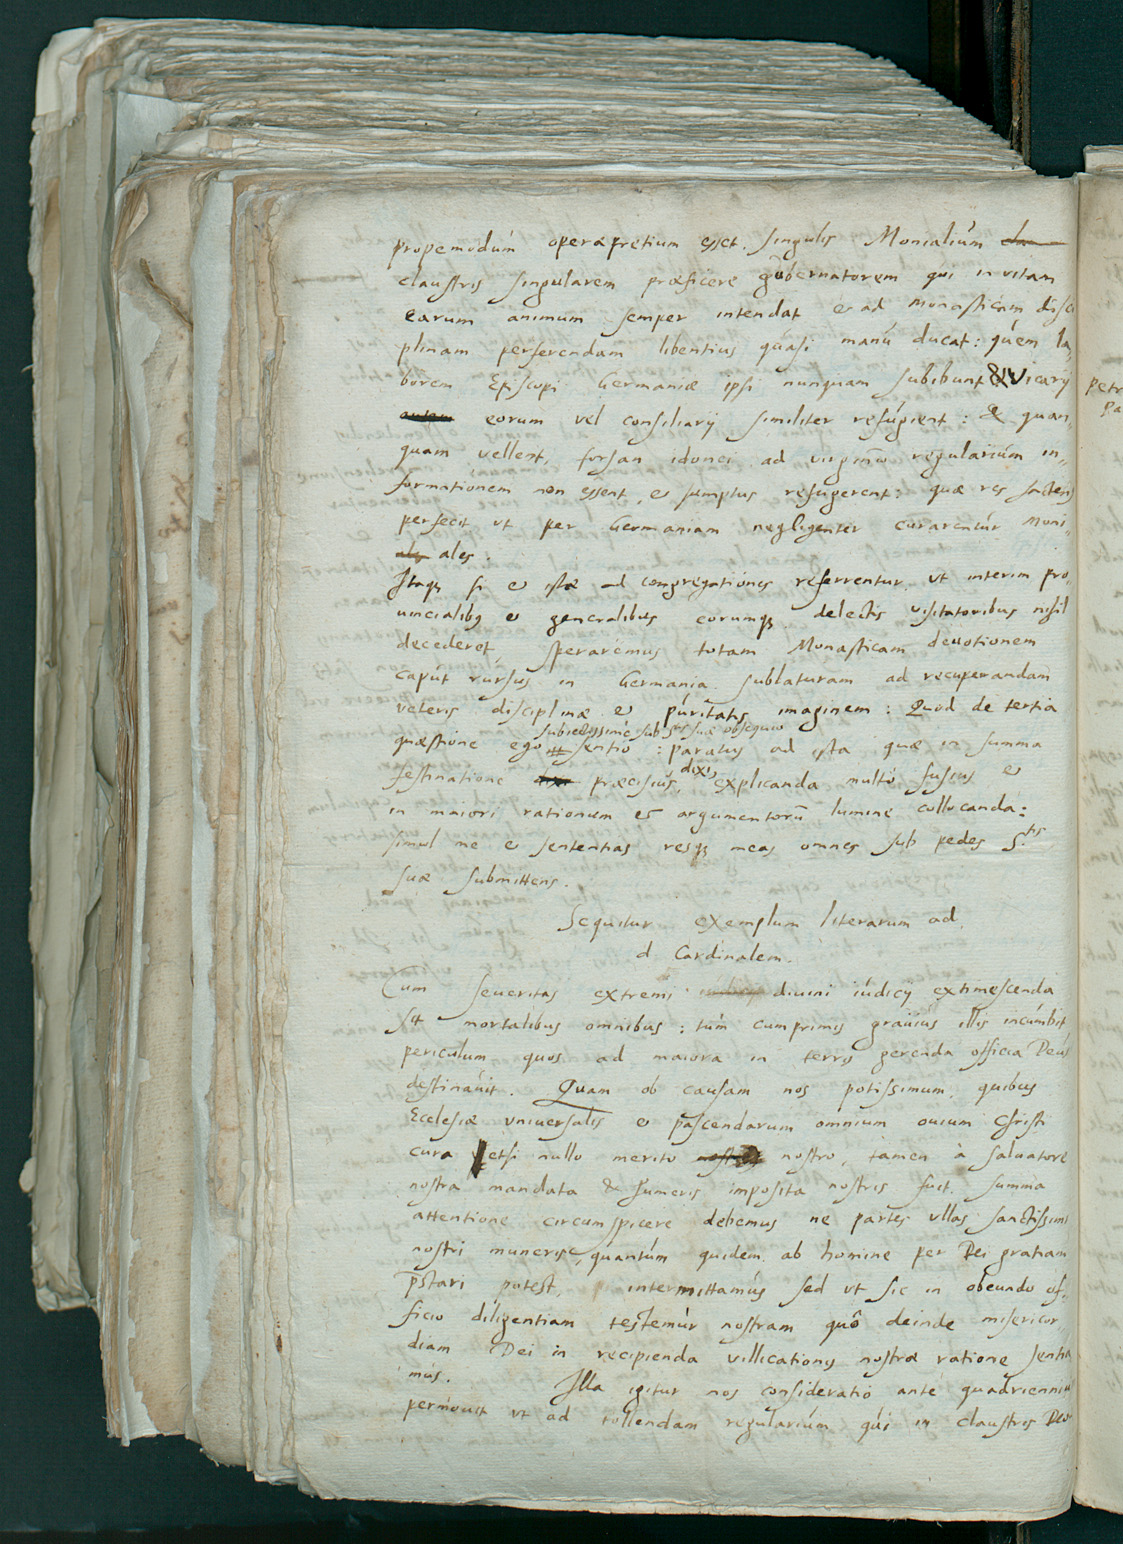 propemodúm operæpretium esset. singulis Monialiúm cla
claustris singularem præficere gubernatorem qui in vitam
earum animum semper intendat et ad monasticam disci
plinam perferendam libentius quasi manú ducat: quem la„
borem Episcopi Germaniæ ipsi nunquam subibunt & Vicarij
autem eorum vel consiliarij similiter refúgient: & quan„
quam vellent, forsan idonei ad virginũ regulariúm in„
formationem non essent, et sumptus refugerent: quæ res
perfecit ut per Germaniam negligenter curarentúr Moni„
ales.
Itaq; si et istæ ad congregationes referrentur, ut interim pro„
uincialibus et generalibus eorumq; delectis visitatoribus nihil
decederet speraremus totam Monasticam deuotionem
capút rúrsus in Germania sublaturam ad recuperandam
veteris disciplinæ et púritatis imaginem: Quod de tertia
subiectissimè sub Stis suæ obsequio
quæstione ego sentio: paratus ad ista quæ in summa
festinatione præcisiús, dixi, explicanda multò fusius et
in maiori rationum et argumentorũ lumine collocanda:
simul me et sententias resq; meas omnes sub pedes S.tis
suæ submittens.
Sequitur exemplum literarum ad
d Cardinalem.
Cum seueritas extremi diuini iúdicij extimescenda
sit mortalibus omnibus: túm cumprimis grauius illis incúmbit
periculum quos ad maiora in terris gerenda officia Deús
destinauit. Quam ob causam nos potissimum, quibus
Ecclesiæ vniuersalis et pascendarum omnium ouium Christi
cura etsi nullo merito nostro, tamen à saluatore
nostra mandata & humeris imposita nostris fuit, summa
attentione circumspicere debemus ne partes vllas sanctissimi
nostri muneris, quantúm quidem ab homine per Dei gratiam
p̃stari potest, intermittamús sed vt sic in obeundo of„
ficio diligentiam testemúr nostram quò deinde misericor„
diam Dei in recipienda villicationis nostræ ratione sentia
mús. Illa igitur nos consideratio ante quadriennium
permouit vt ad tollendam regulariúm qúi in claustris Deo
petr
pa